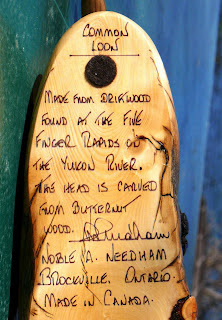 COMMON
LOON
MADE FROM DRIFTWOOD
FOUND AT THE FIVE
FINGER RAPIDS ON
THE YUKON RIVER.
THE HEAD IS CARVED
FROM BUTTERNUT
WOOD. Needham
NOBLE A. NEEDHAM
BROCKVILLE. ONTARIO.
MADE IN CANADA.